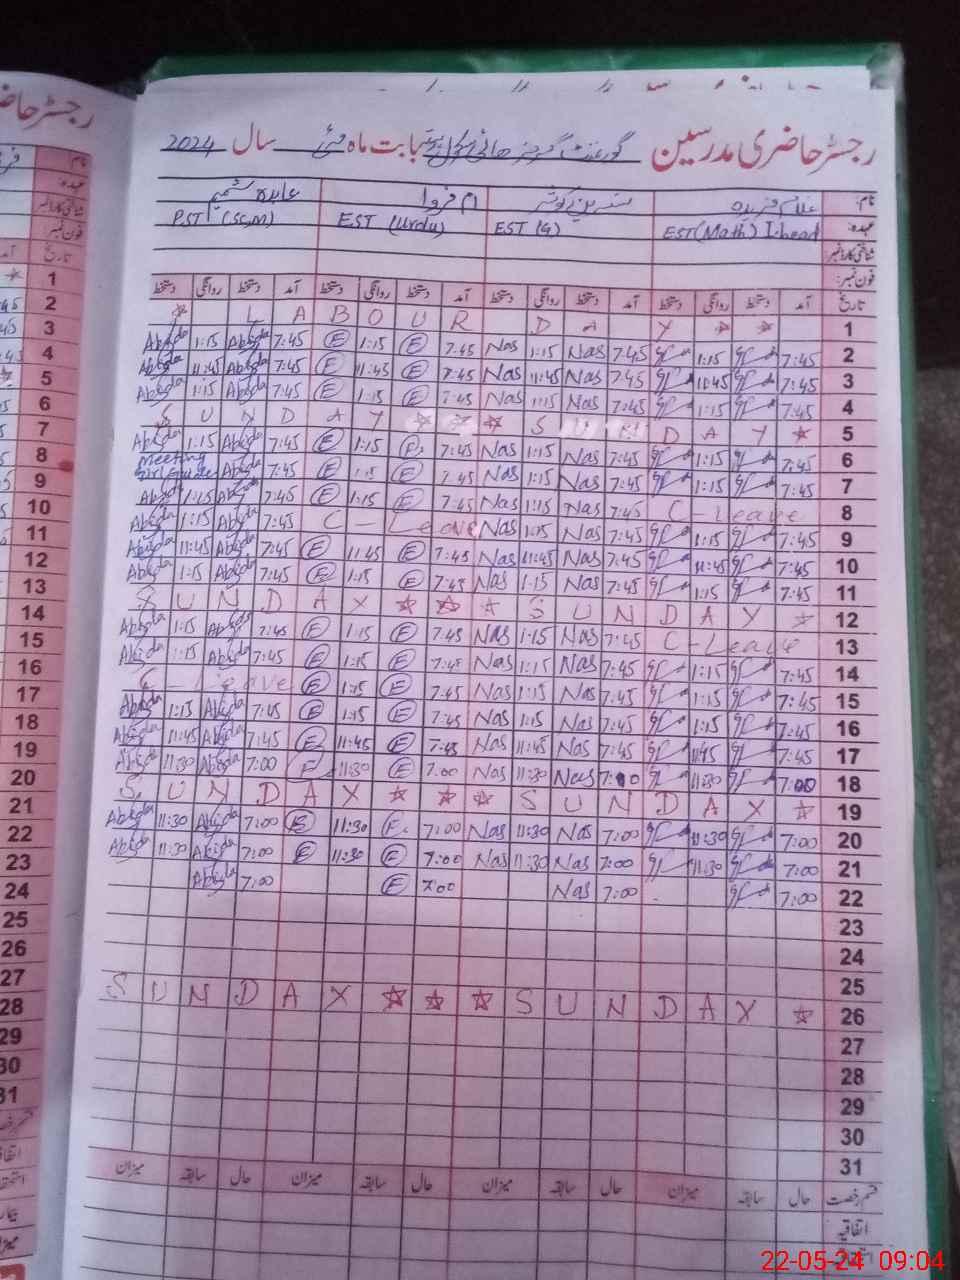 رجسٹر حاضری مدرسین گورنمنٹ گرلز ھائی سکول بابت ماہ مئی سال 2024
نام: غلام فریدہ نسرین کوثر ام فروا عابدہ شمیم
عہدہ: EST (Math) I.head EST (G) EST (Urdu) PST (Sc,M)
شناختی کارڈ نمبر:
فون نمبر:
تاریخ آمد دستخط روانگی دستخط آمد دستخط روانگی دستخط آمد دستخط روانگی دستخط آمد دستخط روانگی دستخط
☆ L A B O U R D A Y ☆ ☆ 1
Abida 1:15 Abida 7:45 E 1:15 E 7:45 Nas 1:15 Nas 7:45 1:15 7:45 2
Abida 11:45 Abida 7:45 E 11:45 E 7:45 Nas 11:45 Nas 7:45 11:45 7:45 3
Abida 1:15 Abida 7:45 E 1:15 E 7:45 Nas 1:15 Nas 7:45 1:15 7:45 4
S U N D A Y ☆ ☆ ☆ S U N D A Y ☆ 5
Abida 1:15 Abida 7:45 E 1:15 E 7:45 Nas 1:15 Nas 7:45 1:15 7:45 6
Meeting Girl Guide Abida 7:45 E 1:15 E 7:45 Nas 1:15 Nas 7:45 1:15 7:45 7
Abida 1:15 Abida 7:45 E 1:15 E 7:45 Nas 1:15 Nas 7:45 C - Leave 8
Abida 1:15 Abida 7:45 C - Leave Nas 1:15 Nas 7:45 1:15 7:45 9
Abida 11:45 Abida 7:45 E 11:45 E 7:45 Nas 11:45 Nas 7:45 11:45 7:45 10
Abida 1:15 Abida 7:45 E 1:15 E 7:45 Nas 1:15 Nas 7:45 1:15 7:45 11
S U N D A Y ☆ ☆ ☆ S U N D A Y ☆ 12
Abida 1:15 Abida 7:45 E 1:15 E 7:45 Nas 1:15 Nas 7:45 C - Leave 13
Abida 1:15 Abida 7:45 E 1:15 E 7:45 Nas 1:15 Nas 7:45 1:15 7:45 14
C - Leave E 1:15 E 7:45 Nas 1:15 Nas 7:45 1:15 7:45 15
Abida 1:15 Abida 7:45 E 1:15 E 7:45 Nas 1:15 Nas 7:45 1:15 7:45 16
Abida 11:45 Abida 7:45 E 11:45 E 7:45 Nas 11:45 Nas 7:45 11:45 7:45 17
Abida 11:30 Abida 7:00 E 11:30 E 7:00 Nas 11:30 Nas 7:00 11:30 7:00 18
S U N D A Y ☆ ☆ ☆ S U N D A Y ☆ 19
Abida 11:30 Abida 7:00 E 11:30 E 7:00 Nas 11:30 Nas 7:00 11:30 7:00 20
Abida 11:30 Abida 7:00 E 11:30 E 7:00 Nas 11:30 Nas 7:00 11:30 7:00 21
Abida 7:00 E 7:00 Nas 7:00 7:00 22
23
24
25
S U N D A Y ☆ ☆ ☆ S U N D A Y ☆ 26
27
28
29
30
31
قسم رخصت حال سابقہ میزان حال سابقہ میزان حال سابقہ میزان حال سابقہ میزان
اتفاقیہ
22-05-24 09:04